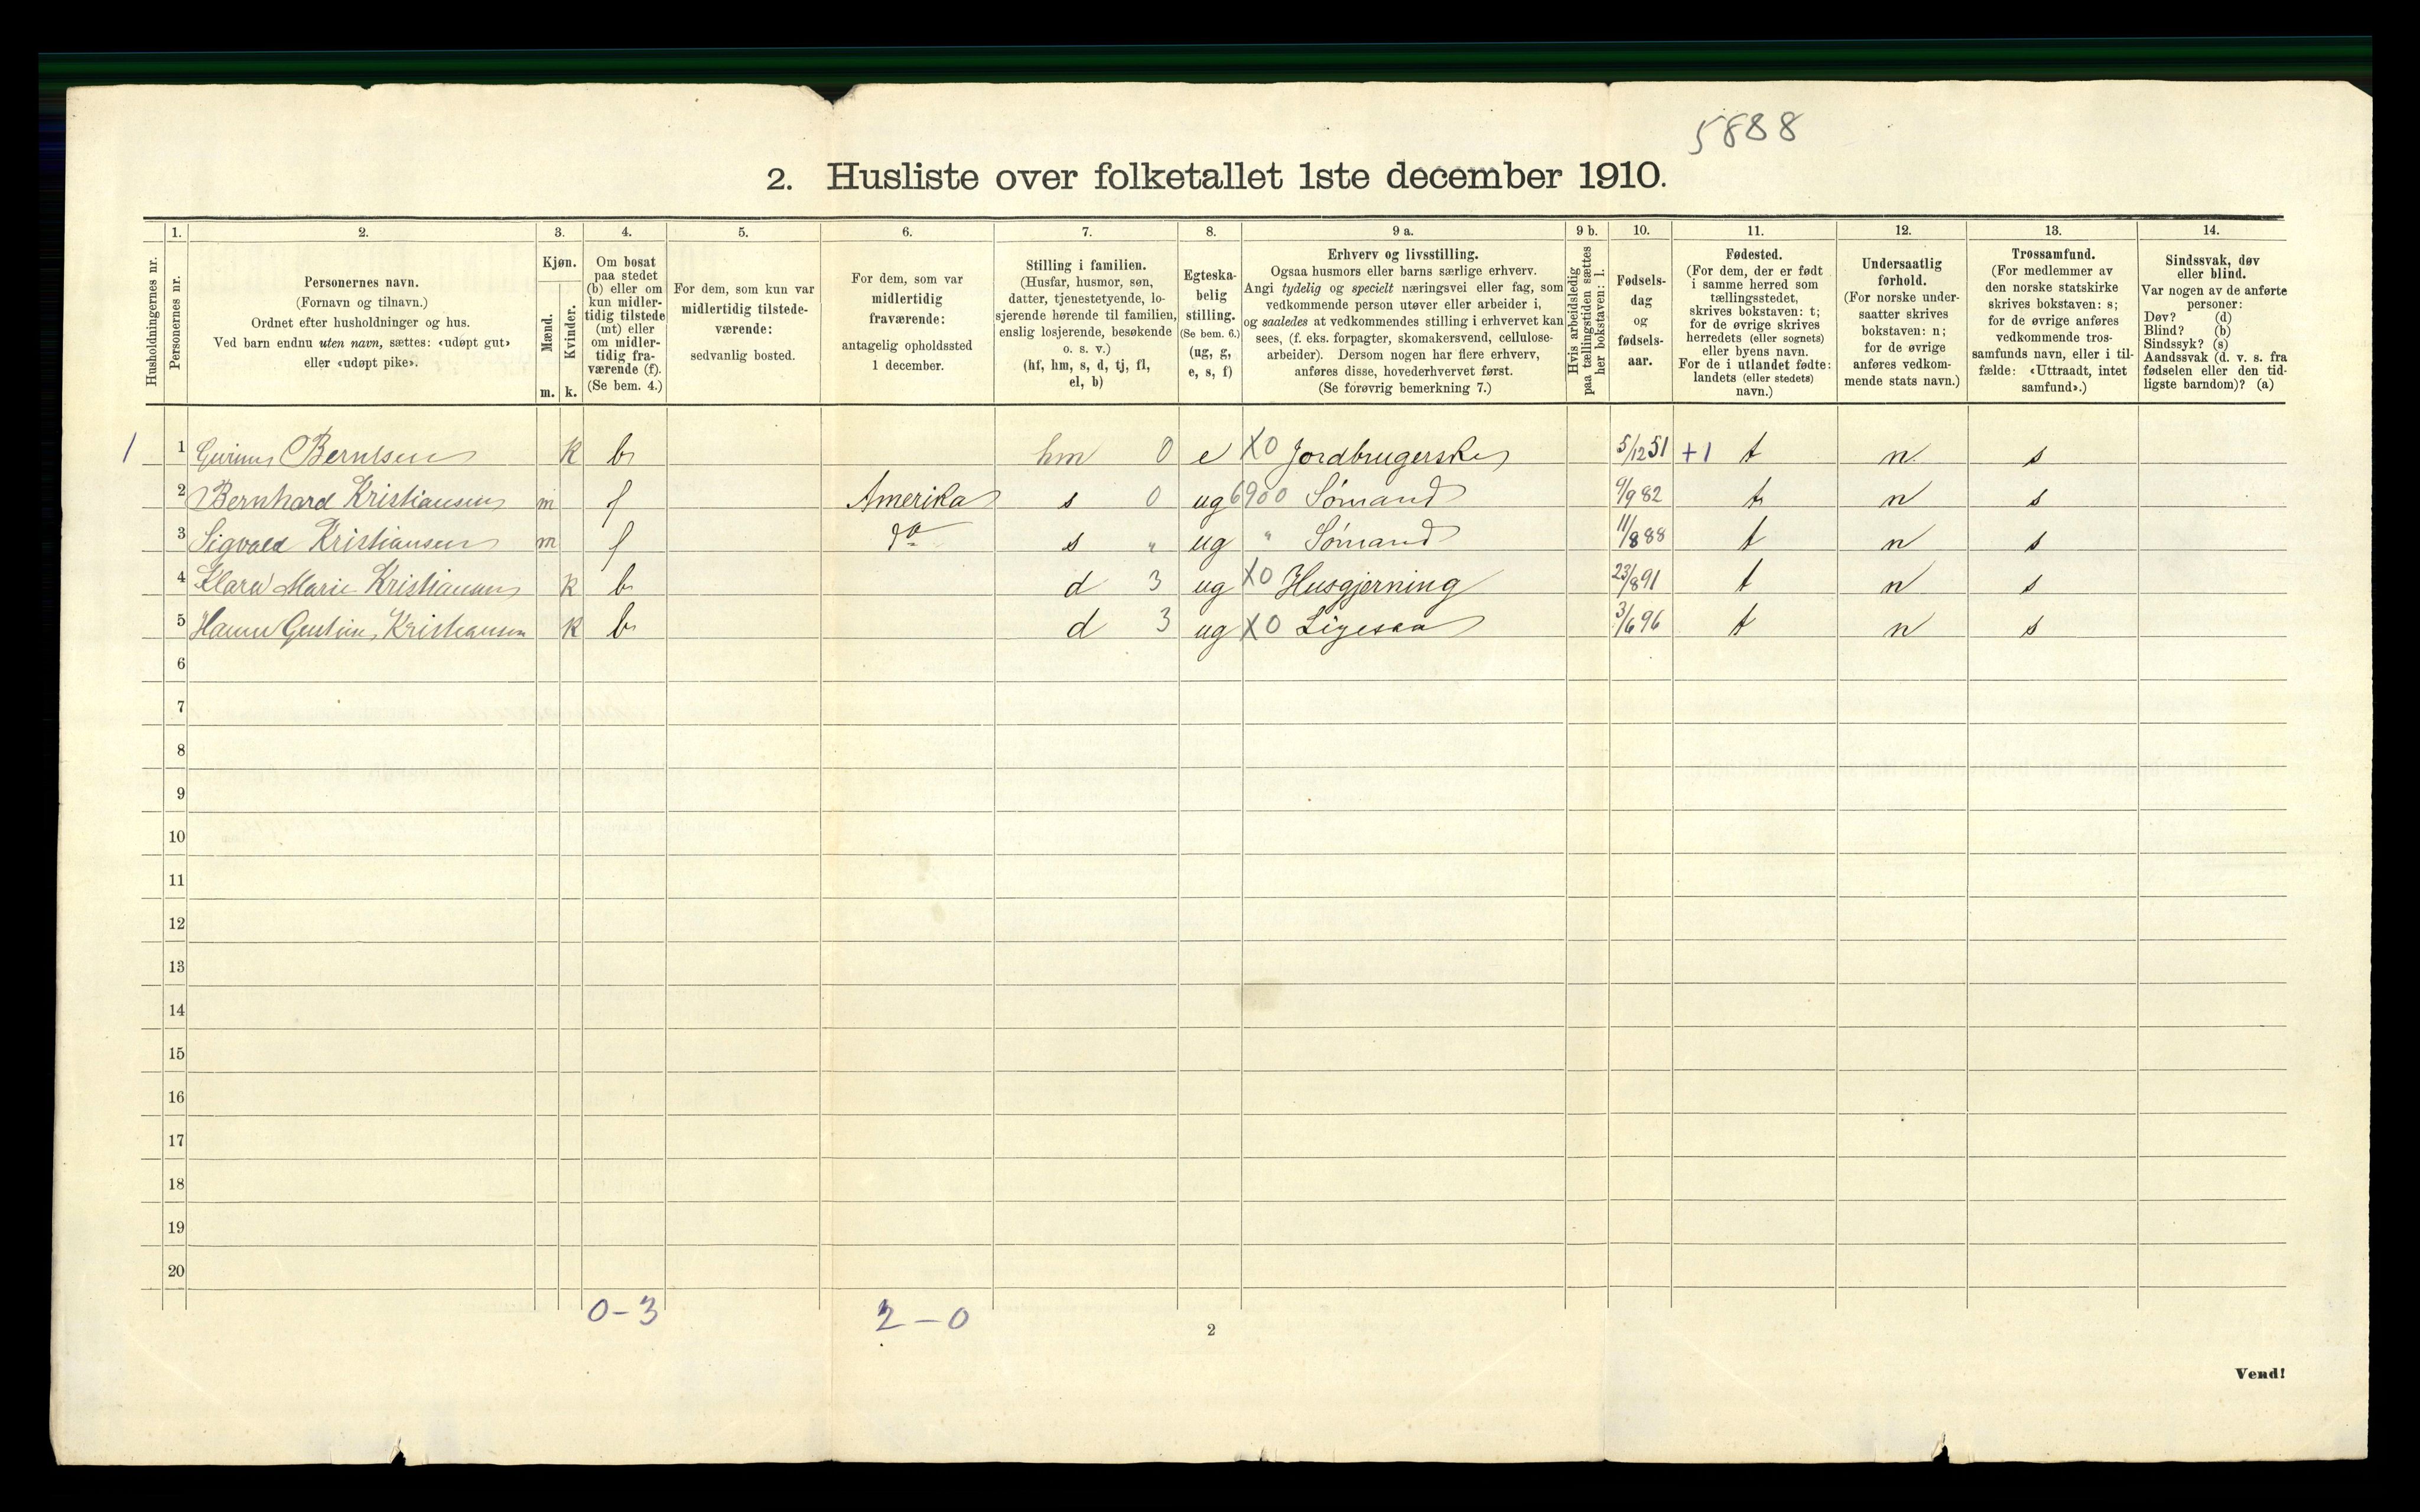 5888
2. Husliste over folketallet 1ste december 1910.
Husholdningernes nr.
1.
Personernes nr.
2.
Personernes navn.
(Fornavn og tilnavn.)
Ordnet efter husholdninger og hus.
Ved barn endnu uten navn, sættes: «udøpt gut»
eller «udøpt pike».
3.
Kjøn.
Mænd.
Kvinder.
m. k.
4.
Om bosat
paa stedet
(b) eller om
kun midler-
tidig tilstede
(mt) eller
om midler-
tidig fra-
værende (f).
(Se bem. 4.)
5.
For dem, som kun var
midlertidig tilstede-
værende:
sedvanlig bosted.
6.
For dem, som var
midlertidig
fraværende:
antagelig opholdssted
1 december.
7.
Stilling i familien.
(Husfar, husmor, søn,
datter, tjenestetyende, lo-
sjerende hørende til familien,
enslig losjerende, besøkende
o. s. v.)
(hf, hm, s, d, tj, fl,
el, b)
8.
Egteska-
belig
stilling.
(Se bem. 6.)
(ug, g,
e, s, f)
9 a.
Erhverv og livsstilling.
Ogsaa husmors eller barns særlige erhverv.
Angi tydelig og specielt næringsvei eller fag, som
vedkommende person utøver eller arbeider i,
og saaledes at vedkommendes stilling i erhvervet kan
sees, (f. eks. forpagter, skomakersvend, cellulose-
arbeider). Dersom nogen har flere erhverv,
anføres disse, hovederhvervet først.
(Se forøvrig bemerkning 7.)
9 b.
Hvis arbeidsledig
paa tællingstiden sættes
her bokstaven: l.
10.
Fødsels-
dag
og
fødsels-
aar.
11.
Fødested.
(For dem, der er født
i samme herred som
tællingsstedet,
skrives bokstaven: t;
for de øvrige skrives
herredets (eller sognets)
eller byens navn.
For de i utlandet fødte:
landets (eller stedets)
navn.)
12.
Undersaatlig
forhold.
(For norske under-
saatter skrives
bokstaven: n;
for de øvrige
anføres vedkom-
mende stats navn.)
13.
Trossamfund.
(For medlemmer av
den norske statskirke
skrives bokstaven: s;
for de øvrige anføres
vedkommende tros-
samfunds navn, eller i til-
fælde: «Uttraadt, intet
samfund».)
14.
Sindssvak, døv
eller blind.
Var nogen av de anførte
personer:
Døv? (d)
Blind? (b)
Sindssyk? (s)
Aandssvak (d. v. s. fra
fødselen eller den tid-
ligste barndom)? (a)
1 1 Berntsen k b hm 0 e X0 Jordbrugerske 5/12 51 +1 t n s
2 Bernhard Kristiansen m f Amerika s 0 ug 6900 Sømand 9/9 82 t n s
3 Sigvald Kristiansen m f do s " ug " Sømand 11/8 88 t n s
4 Klara Marie Kristiansen k b d 3 ug X0 Husgjerning 23/8 91 t n s
5 Hanne Kristiansen k b d 3 ug X0 Ligesaa 3/6 96 t n s
6
7
8
9
10
11
12
13
14
15
16
17
18
19
20
0-3 2-0
2
Vend!